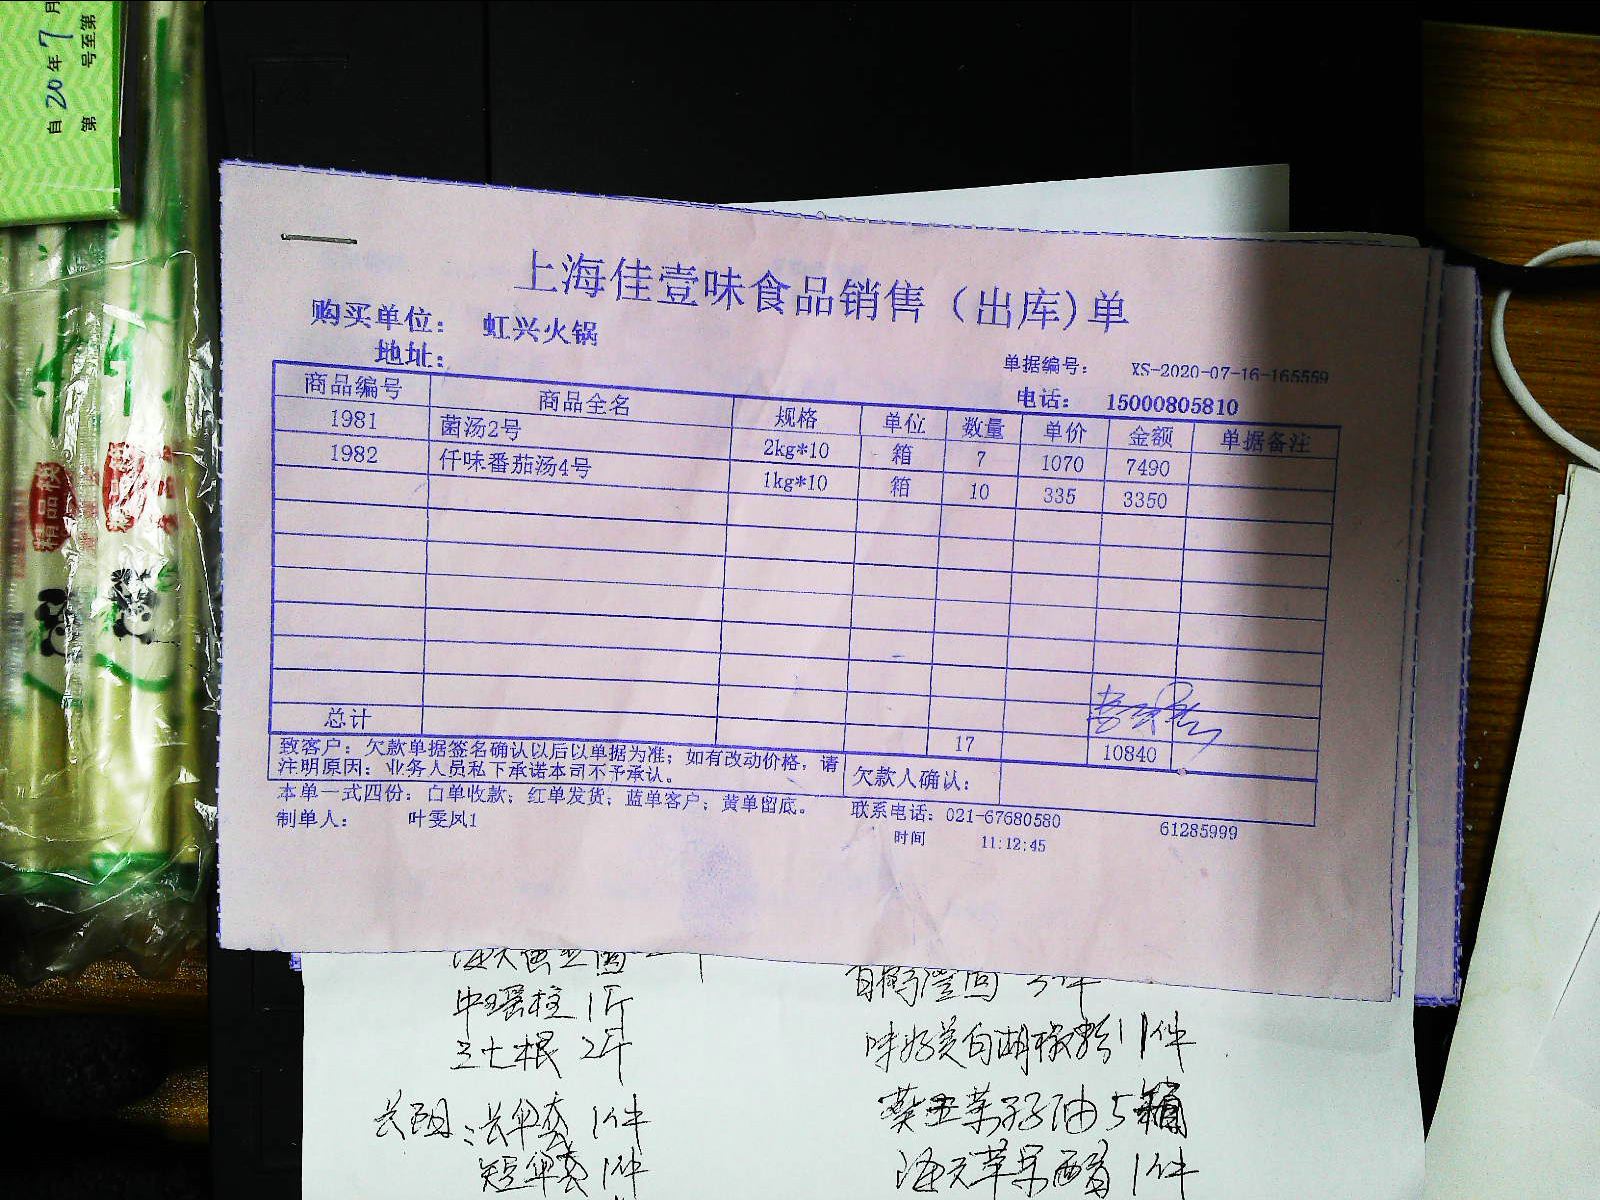 自20年7月
第 号至第
精品筷
上海佳壹味食品销售（出库)单
购买单位： 虹兴火锅
地址：
单据编号： XS-2020-07-16-165559
电话： 15000805810
商品编号 商品全名 规格 单位 数量 单价 金额 单据备注
1981 菌汤2号 2kg*10 箱 7 1070 7490
1982 仟味番茄汤4号 1kg*10 箱 10 335 3350
总计 17 10840
致客户：欠款单据签名确认以后以单据为准；如有改动价格，请
注明原因：业务人员私下承诺本司不予承认。
欠款人确认：
本单一式四份：白单收款；红单发货；蓝单客户；黄单留底。
联系电话：021-67680580 61285999
制单人： 叶雯凤1
时间 11:12:45
中瑶柱 1斤
三七根 2斤
味好美白胡椒粉 1件
长伞套 1件
葵王菜子油 5箱
短伞套 1件
海天苹果醋 1件